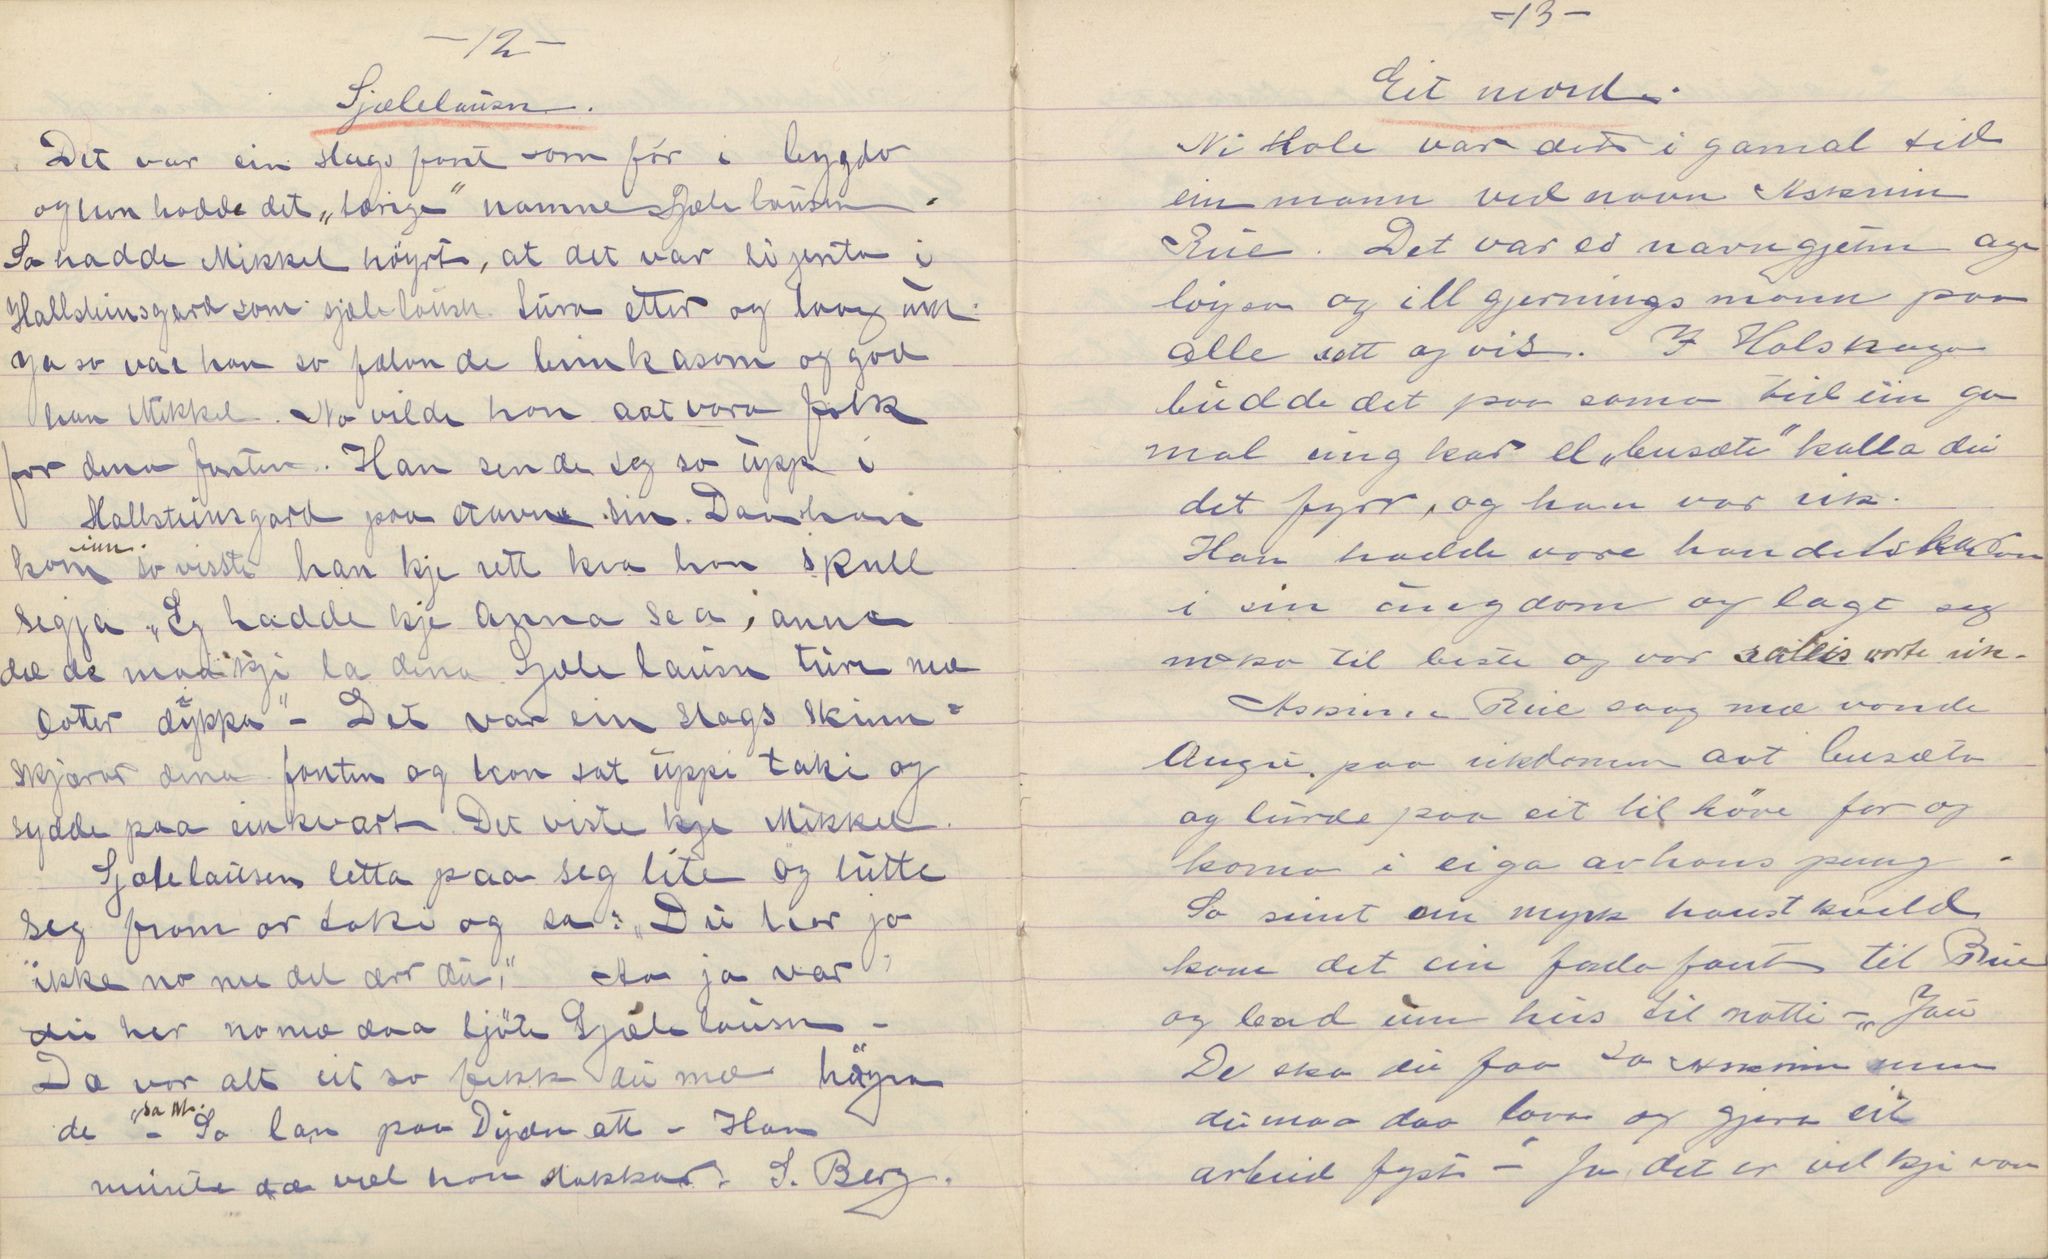 -12-
Sjælelausn.
Det var ein slags fant som för i bygdo
og han hadde det „lærige" namne Sjælelausen.
So hadde Mikkel höyrt, at det var ei jenta i
Hallsteinsgard som sjælelausn lura etter og laag um.
Ja so var han so fælande linnkasom og god
han Mikkel. No vilde han aatvara folk
for dena fanten. Han sende seg so upp i
Hallsteinsgard paa stavne sin. Daa han
kom inn. so visste han kje rett kva han skull
segja „Eg hadde kje anna sea, anna
dæ de maa kji la dena Sjælelausn ture mæ
dotter dykka" - Det var ein slags skinn-
skjærar dena fanten og han sat uppi taki og
sydde paa einkvart. Det viste kje Mikkel.
Sjælelausen letta paa seg lite og lutte
seg fram or taki og sa: „Du har jo
ikke no me det ærr du," Aa ja var
du her no mæ daa ljöte Sjælelausn -
Dæ var alt eit so fekk du mæ höyra
de" „sa M. - So lan paa Dyden att - Han
mi​nte dæ vel han stakkar. S. Berg.
-13-
Eit mord.
Ni Hole var det i gamal tid
ein mann ved navn Askrim
Rue. Det var ei navngjetin age
löysa og illgjernings mann paa
alle sett og vis. I Holskaga
budde det paa sama tid ein ga
mal ungkar el „busæte" kalla dei
det fyrr, og han var rik.
Han hadde vore handelskar
i sin ungdom og lagt seg
noko til beste og var sålleis vorte rik.
Askrim Rue saag mæ vonde
Augu. paa rikdomen aat busæta
og lurde paa eit tilhöve for og
koma i eiga av hans pung.
So seint ein myrk haustkveld
kom det ein fenda fant til Rue
og bad um hus til natti - „Jau
De ska du faa sa Askrim men
du maa daa lova og gjera eit
arbeid fyst - Ja, det er vel kje van